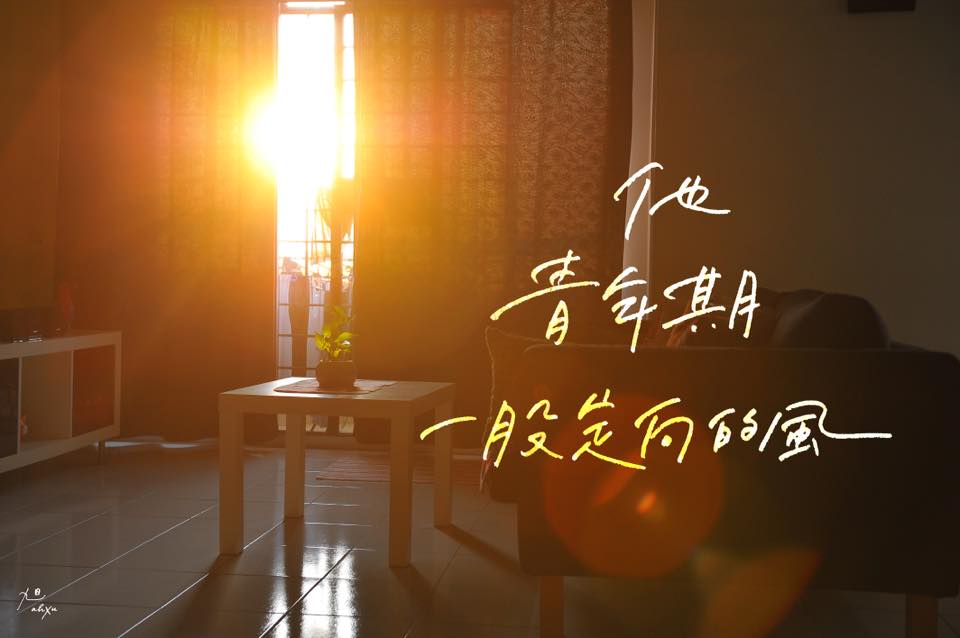 他
青年期
一股定向的風
ahxu